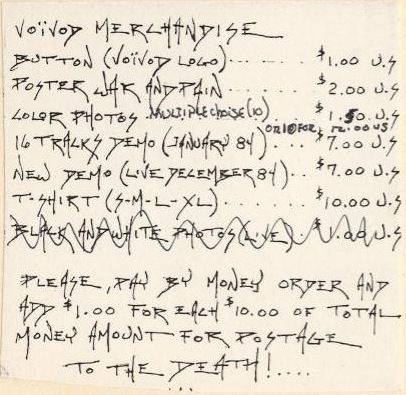 VOÏVOD MERCHANDISE
BUTTON (VOÏVOD LOGO)........ $1.00 U.S
POSTER WAR AND PAIN........ $2.00 U.S
COLOR PHOTOS MULTIPLE CHOISE (10)..... $1.50 U.S
OR 10 FOR 12.00 US
16 TRACKS DEMO (JANUARY 84)... $7.00 U.S
NEW DEMO (LIVE DECEMBER 84).. $7.00 U.S
T-SHIRT (S-M-L-XL)....... $10.00 U.S
BLACK AND WHITE PHOTOS (LIVE). $1.00 U.S
PLEASE, PAY BY MONEY ORDER AND
ADD $1.00 FOR EACH $10.00 OF TOTAL
MONEY AMOUNT FOR POSTAGE
TO THE DEATH!....
...